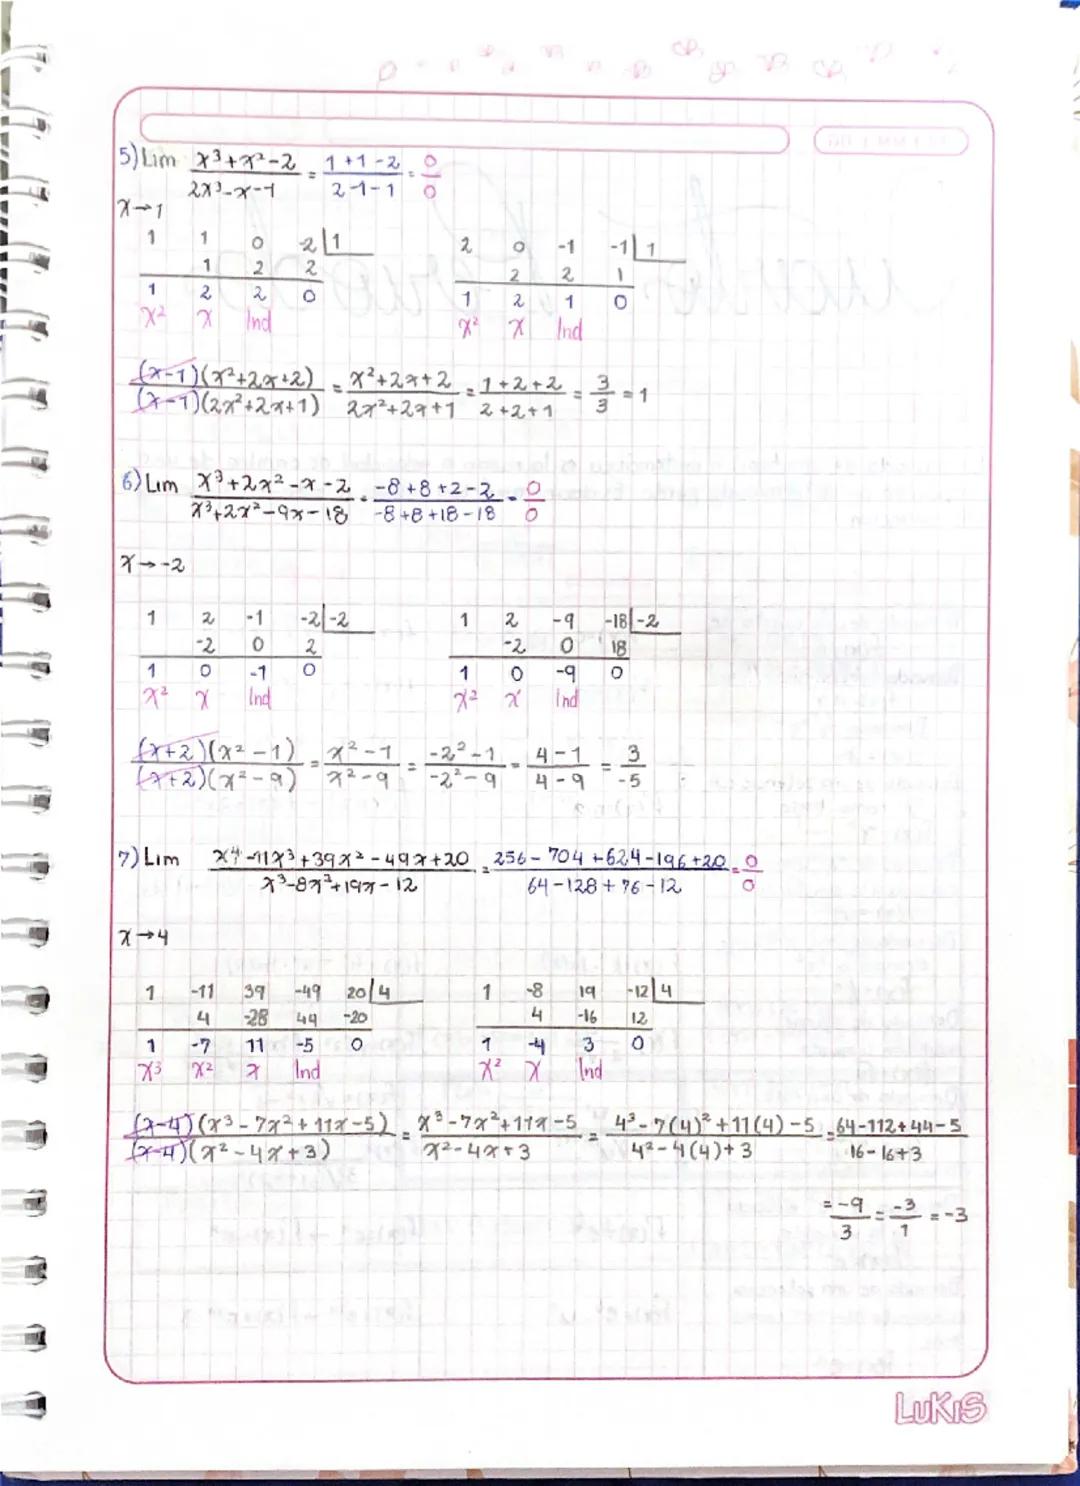 5) Lim x³+x²-2 / 2x³-x-1 = 1+1-2 / 2-1-1 = 0/0
x→1
1 1 0 -2 |1
1 2 2
1 2 2 0
x² x Ind
2 0 -1 -1 |1
2 2 1
1 2 1 0
x² x Ind
(x-1)(x²+2x+2) / (x-1)(2x²+2x+1) = x²+2x+2 / 2x²+2x+1 = 1+2+2 / 2+2+1 = 3/3 = 1
6) Lim x³+2x²-x-2 / x³+2x²-9x-18 = -8+8+2-2 / -8+8+18-18 = 0/0
x→-2
1 2 -1 -2 |-2
-2 0 2
1 0 -1 0
x² x Ind
1 2 -9 -18 |-2
-2 0 18
1 0 -9 0
x² x Ind
(x+2)(x²-1) / (x+2)(x²-9) = x²-1 / x²-9 = -2²-1 / -2²-9 = 4-1 / 4-9 = 3 / -5
7) Lim x⁴-11x³+39x²-49x+20 / x³-8x²+19x-12 = 256-704+624-196+20 / 64-128+76-12 = 0/0
x→4
1 -11 39 -49 20 |4
4 -28 44 -20
1 -7 11 -5 0
x³ x² x Ind
1 -8 19 -12 |4
4 -16 12
1 -4 3 0
x² x Ind
(x-4)(x³-7x²+11x-5) / (x-4)(x²-4x+3) = x³-7x²+11x-5 / x²-4x+3 = 4³-7(4)²+11(4)-5 / 4²-4(4)+3 = 64-112+44-5 / 16-16+3
= -9/3 = -3/1 = -3
LuKiS